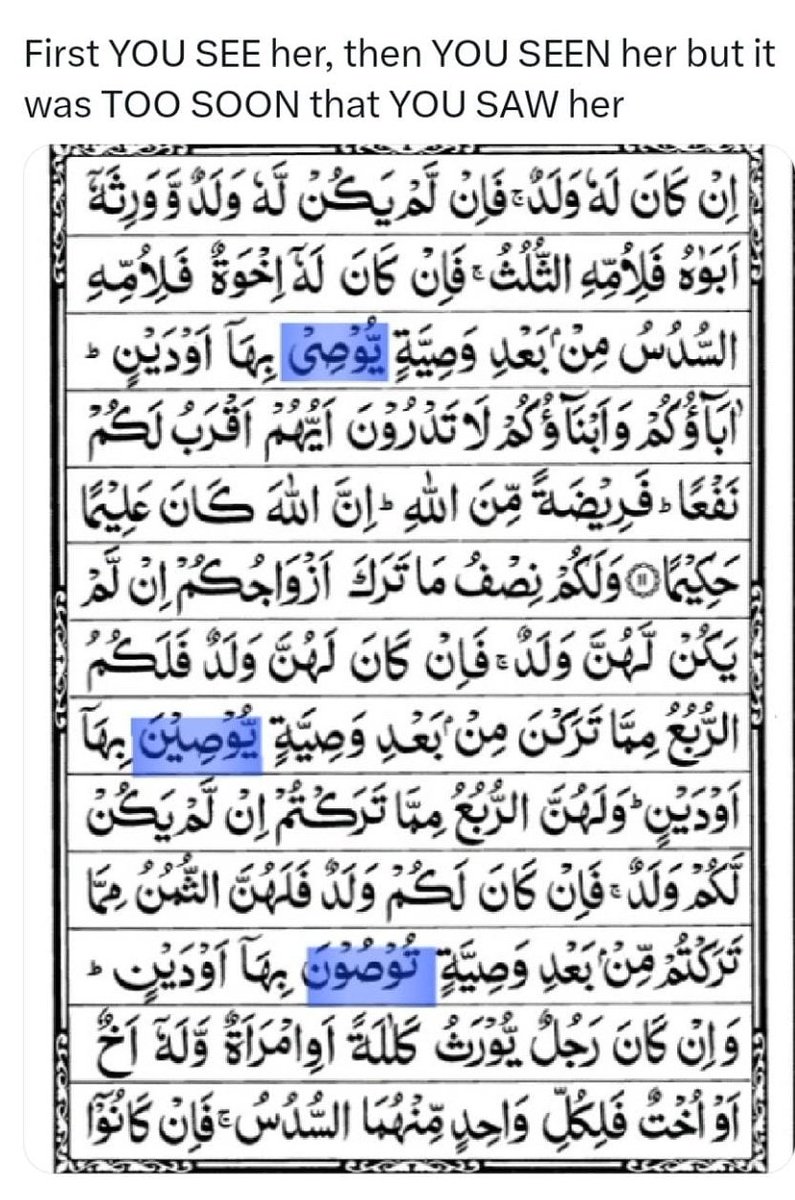 First YOU SEE her, then YOU SEEN her but it
was TOO SOON that YOU SAW her
اِنْ كَانَ لَهٗ وَلَدٌ ۚ فَاِنْ لَّمْ يَكُنْ لَّهٗ وَلَدٌ وَّوَرِثَهٗۤ
اَبَوٰهُ فَلِاُمِّهِ الثُّلُثُ ۚ فَاِنْ كَانَ لَهٗۤ اِخْوَةٌ فَلِاُمِّهِ
السُّدُسُ مِنْۢ بَعْدِ وَصِيَّةٍ يُّوْصِیْ بِهَاۤ اَوْ دَيْنٍ ؕ
اٰبَآؤُكُمْ وَاَبْنَآؤُكُمْ لَا تَدْرُوْنَ اَيُّهُمْ اَقْرَبُ لَكُمْ
نَفْعًا ؕ فَرِيْضَةً مِّنَ اللّٰهِ ؕ اِنَّ اللّٰهَ كَانَ عَلِيْمًا
حَكِيْمًا ۝۱۱ وَلَكُمْ نِصْفُ مَا تَرَكَ اَزْوَاجُكُمْ اِنْ لَّمْ
يَكُنْ لَّهُنَّ وَلَدٌ ۚ فَاِنْ كَانَ لَهُنَّ وَلَدٌ فَلَكُمُ
الرُّبُعُ مِمَّا تَرَكْنَ مِنْۢ بَعْدِ وَصِيَّةٍ يُّوْصِيْنَ بِهَاۤ
اَوْ دَيْنٍ ؕ وَلَهُنَّ الرُّبُعُ مِمَّا تَرَكْتُمْ اِنْ لَّمْ يَكُنْ
لَّكُمْ وَلَدٌ ۚ فَاِنْ كَانَ لَكُمْ وَلَدٌ فَلَهُنَّ الثُّمُنُ مِمَّا
تَرَكْتُمْ مِّنْۢ بَعْدِ وَصِيَّةٍ تُوْصُوْنَ بِهَاۤ اَوْ دَيْنٍ ؕ
وَاِنْ كَانَ رَجُلٌ يُّوْرَثُ كَلٰلَةً اَوِ امْرَاَةٌ وَّلَهٗۤ اَخٌ
اَوْ اُخْتٌ فَلِكُلِّ وَاحِدٍ مِّنْهُمَا السُّدُسُ ۚ فَاِنْ كَانُوْۤا